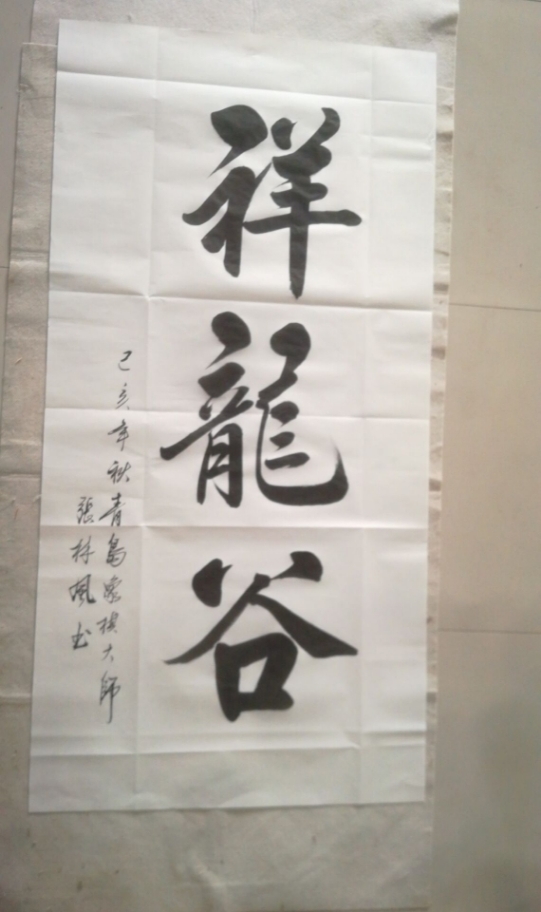 祥龍谷
己亥年秋青島象棋大師
張林風书